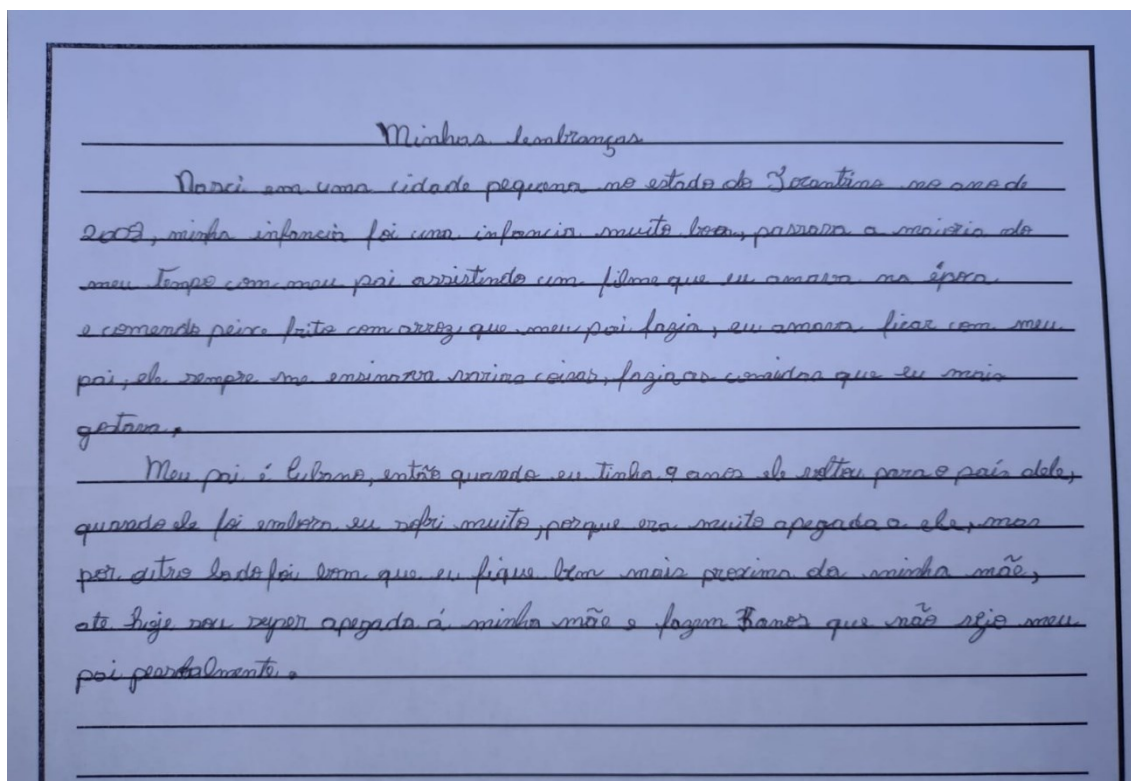 Minhas lembranças
Nasci em uma cidade pequena no estado do Tocantins no ano de
2002, minha infancia foi uma infancia muito boa, passava a maioria do
meu tempo com meu pai assistindo um filme que eu amava na época
e comendo peixe frito com arroz que meu pai fazia, eu amava ficar com meu
pai, ele sempre me ensinava varias coisas, fazia as comidas que eu mais
gostava.
Meu pai é Cubano, então quando eu tinha 9 anos ele voltou para o país dele,
quando ele foi embora eu sofri muito, porque era muito apegada a ele, mas
por outro lado foi bom que eu fique bem mais proxima da minha mãe,
ate hoje sou super apegada á minha mãe e fazem anos que não vejo meu
pai